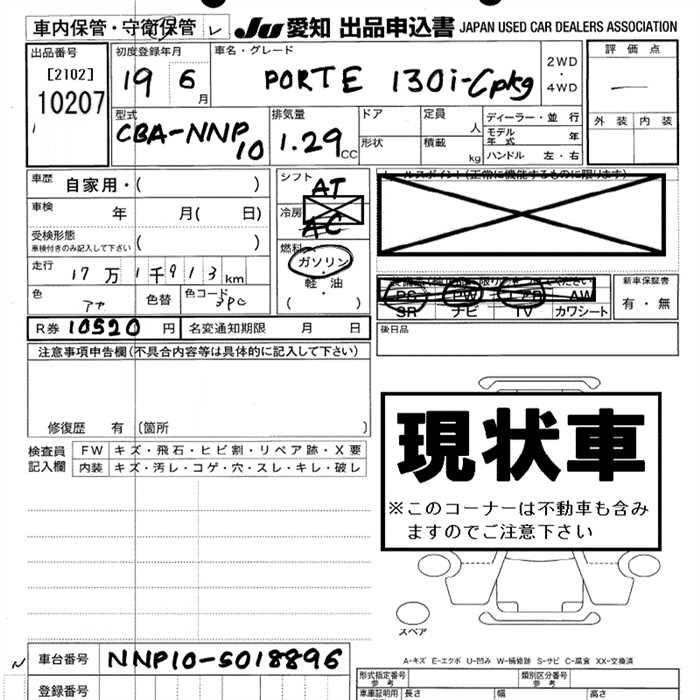 車内保管・守衛保管 レ JU 愛知 出品申込書 JAPAN USED CAR DEALERS ASSOCIATION
出品番号 初度登録年月 車名・グレード 評価点
[2102] 19 6 月 PORTE 130i-Cpkg 2WD ・ 4WD
10207 外装 内装
型式 排気量 ドア 定員 人 ディーラー・並行
CBA-NNP10 1.29 CC 形状 積載 kg モデル年式 年
ハンドル 左・右
車歴 自家用・( ) シフト AT
車検 年 月( 日) 冷房 AC
受検形態 車検付きのみ記入して下さい ( ) 燃料 ガソリン・軽油 ( )
走行 17万1千913km PS PW エアB AW 新車保証書
色 色替 色コード 3PC SR ナビ TV カワシート 有・無
R券 10520 円 名変通知期限 月 日 後日品
注意事項申告欄(不具合内容等は具体的に記入して下さい)
修復歴 有 〔箇所 〕
現状車
※このコーナーは不動車も含み
ますのでご注意下さい
検査員記入欄 FW キズ・飛石・ヒビ割・リペア跡・X要
内装 キズ・汚レ・コゲ・穴・スレ・キレ・破レ
スペア
A-キズ E-エクボ U-凹み W-補修跡 S-サビ C-腐食 XX-交換済
車台番号 NNP10-5018896
登録番号
形式指定番号 参考 類別区分番号 参考
車庫証明用 参考 長さ 幅 高さ